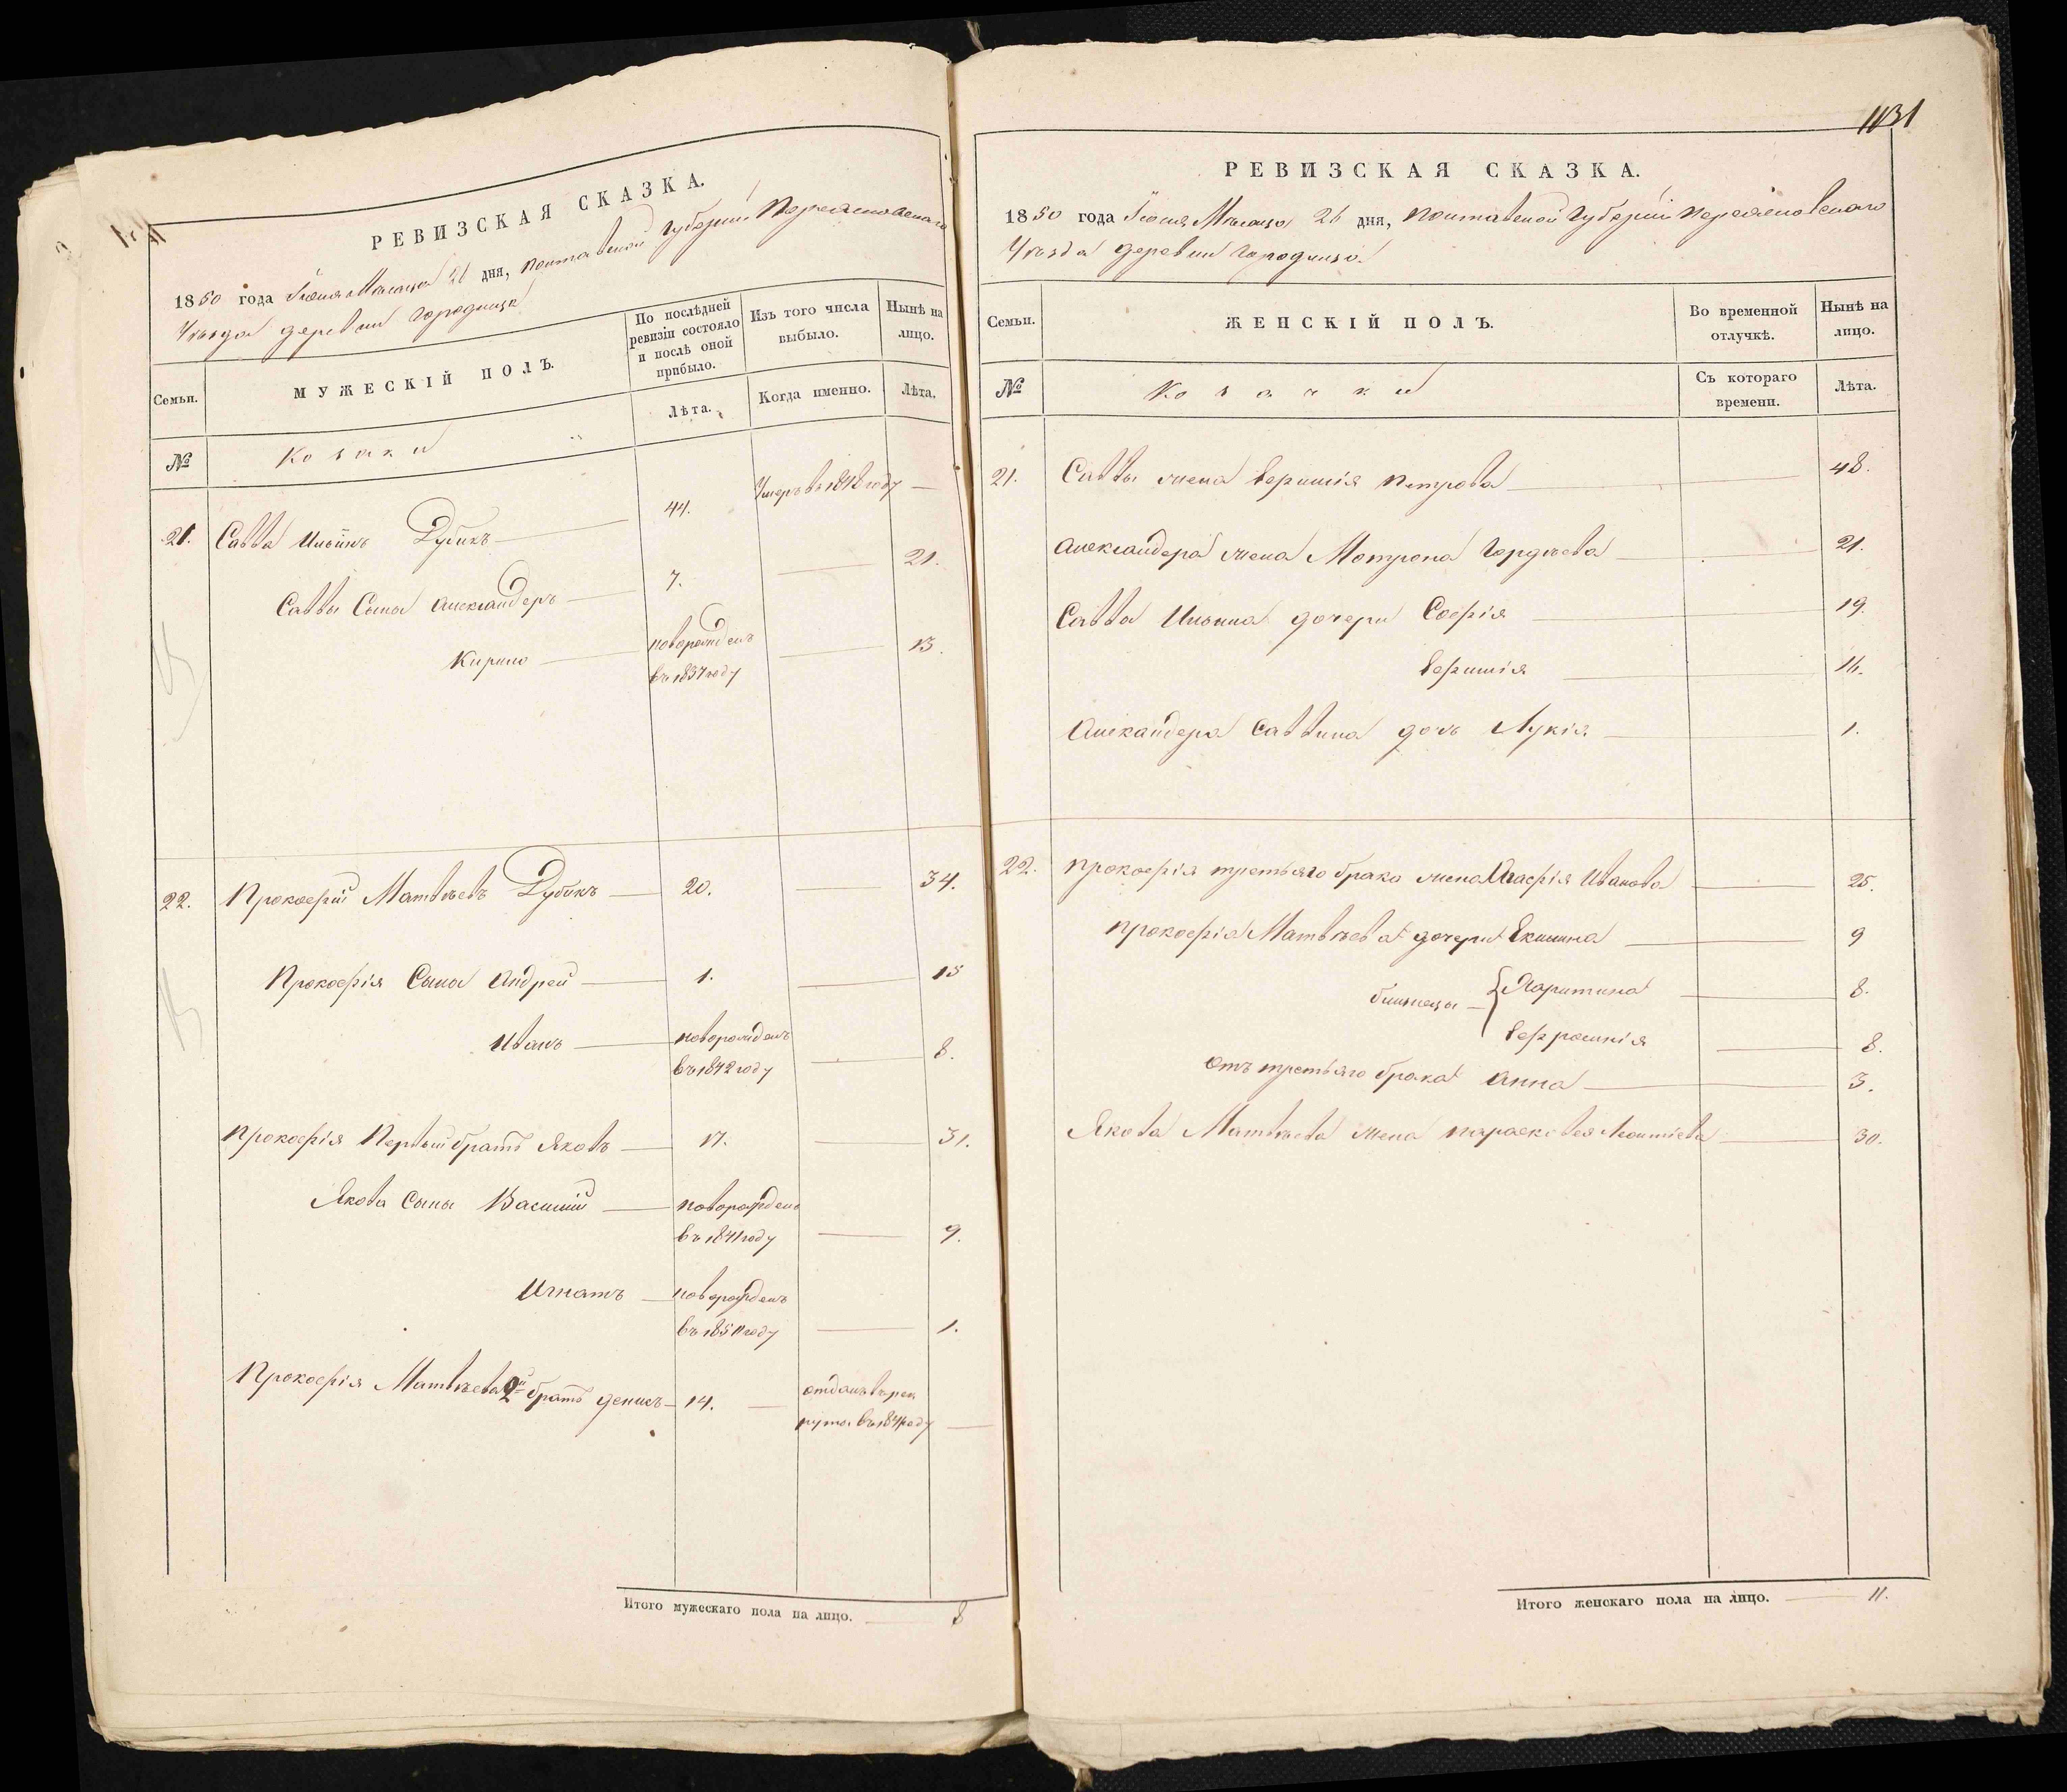 РЕВИЗСКАЯ СКАЗКА.
1850 года Іюня Мѣсяца 26 дня, Полтавской Губерніи Переяславскаго
Уѣзда деревни Городища
Семьи.
МУЖЕСКІЙ ПОЛЪ.
По послѣдней ревизіи состояло и послѣ оной прибыло.
Изъ того числа выбыло.
Нынѣ на лицо.
№
Козаки
Лѣта.
Когда именно.
Лѣта.
21. Савва Ильинъ Дубикъ 44. Умеръ въ 1848 году
Саввы Сыны Александеръ 7. 21.
Кирило новорожденъ 13.
въ 1837 году
22. Прокофій Матвѣевъ Дубикъ 20. 34.
Прокофія Сыны Андрей 1. 15
Иванъ новорожденъ 8.
въ 1842 году
Прокофія Первый братъ Яковъ 17. 31.
Якова Сыны Василий новорожденъ
въ 1841 году 9.
Игнатъ новорожденъ
году 1.
Прокофія Матвѣева 2й братъ Денисъ 14. отданъ въ рек
руты въ году
Итого мужескаго пола на лицо. 8
1131
РЕВИЗСКАЯ СКАЗКА.
1850 года Іюня Мѣсяца 26 дня, Полтавской Губерніи Переяславскаго
Уѣзда деревни Городища.
Семьи.
ЖЕНСКІЙ ПОЛЪ.
Во временной отлучкѣ.
Нынѣ на лицо.
№
Козачки
Съ котораго времени.
Лѣта.
21. Саввы жена Петрова 48.
Александера жена Мотрона Гордѣева 21.
Савва Ильина дочери Софія 19.
16.
Александера Саввина дочь Лукія 1.
22. Прокофія третьяго брака жена Агафія Иванова 25.
Прокофія Матвѣева дочери Екилина 9
близнецы Харитина 8.
Ефросинія 8.
Отъ третьяго брака Анна 3.
Якова Матвѣева жена Парасковея Леонтіева 30.
Итого женскаго пола на лицо. 11.